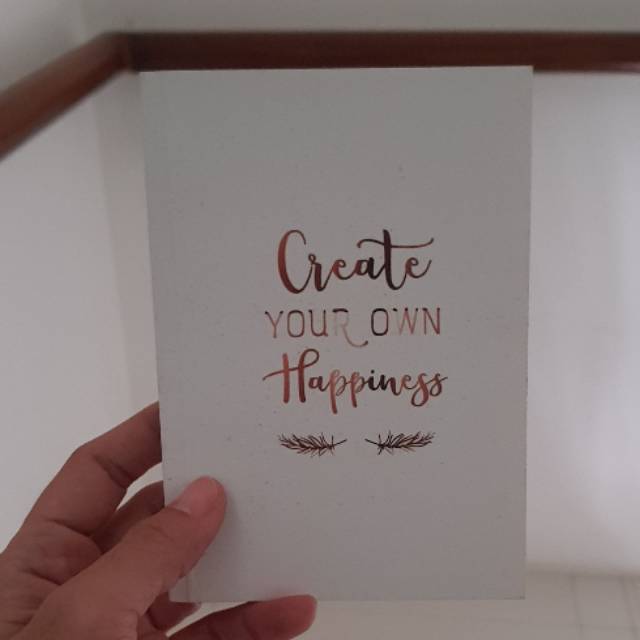 Create
YOUR OWN
Happiness